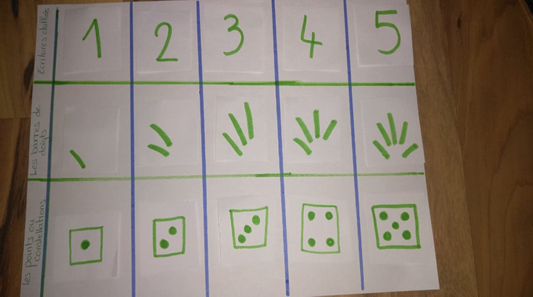 Ecritures chiffrées
1 2 3 4 5
Les barres de
doigts
les points ou
constellations